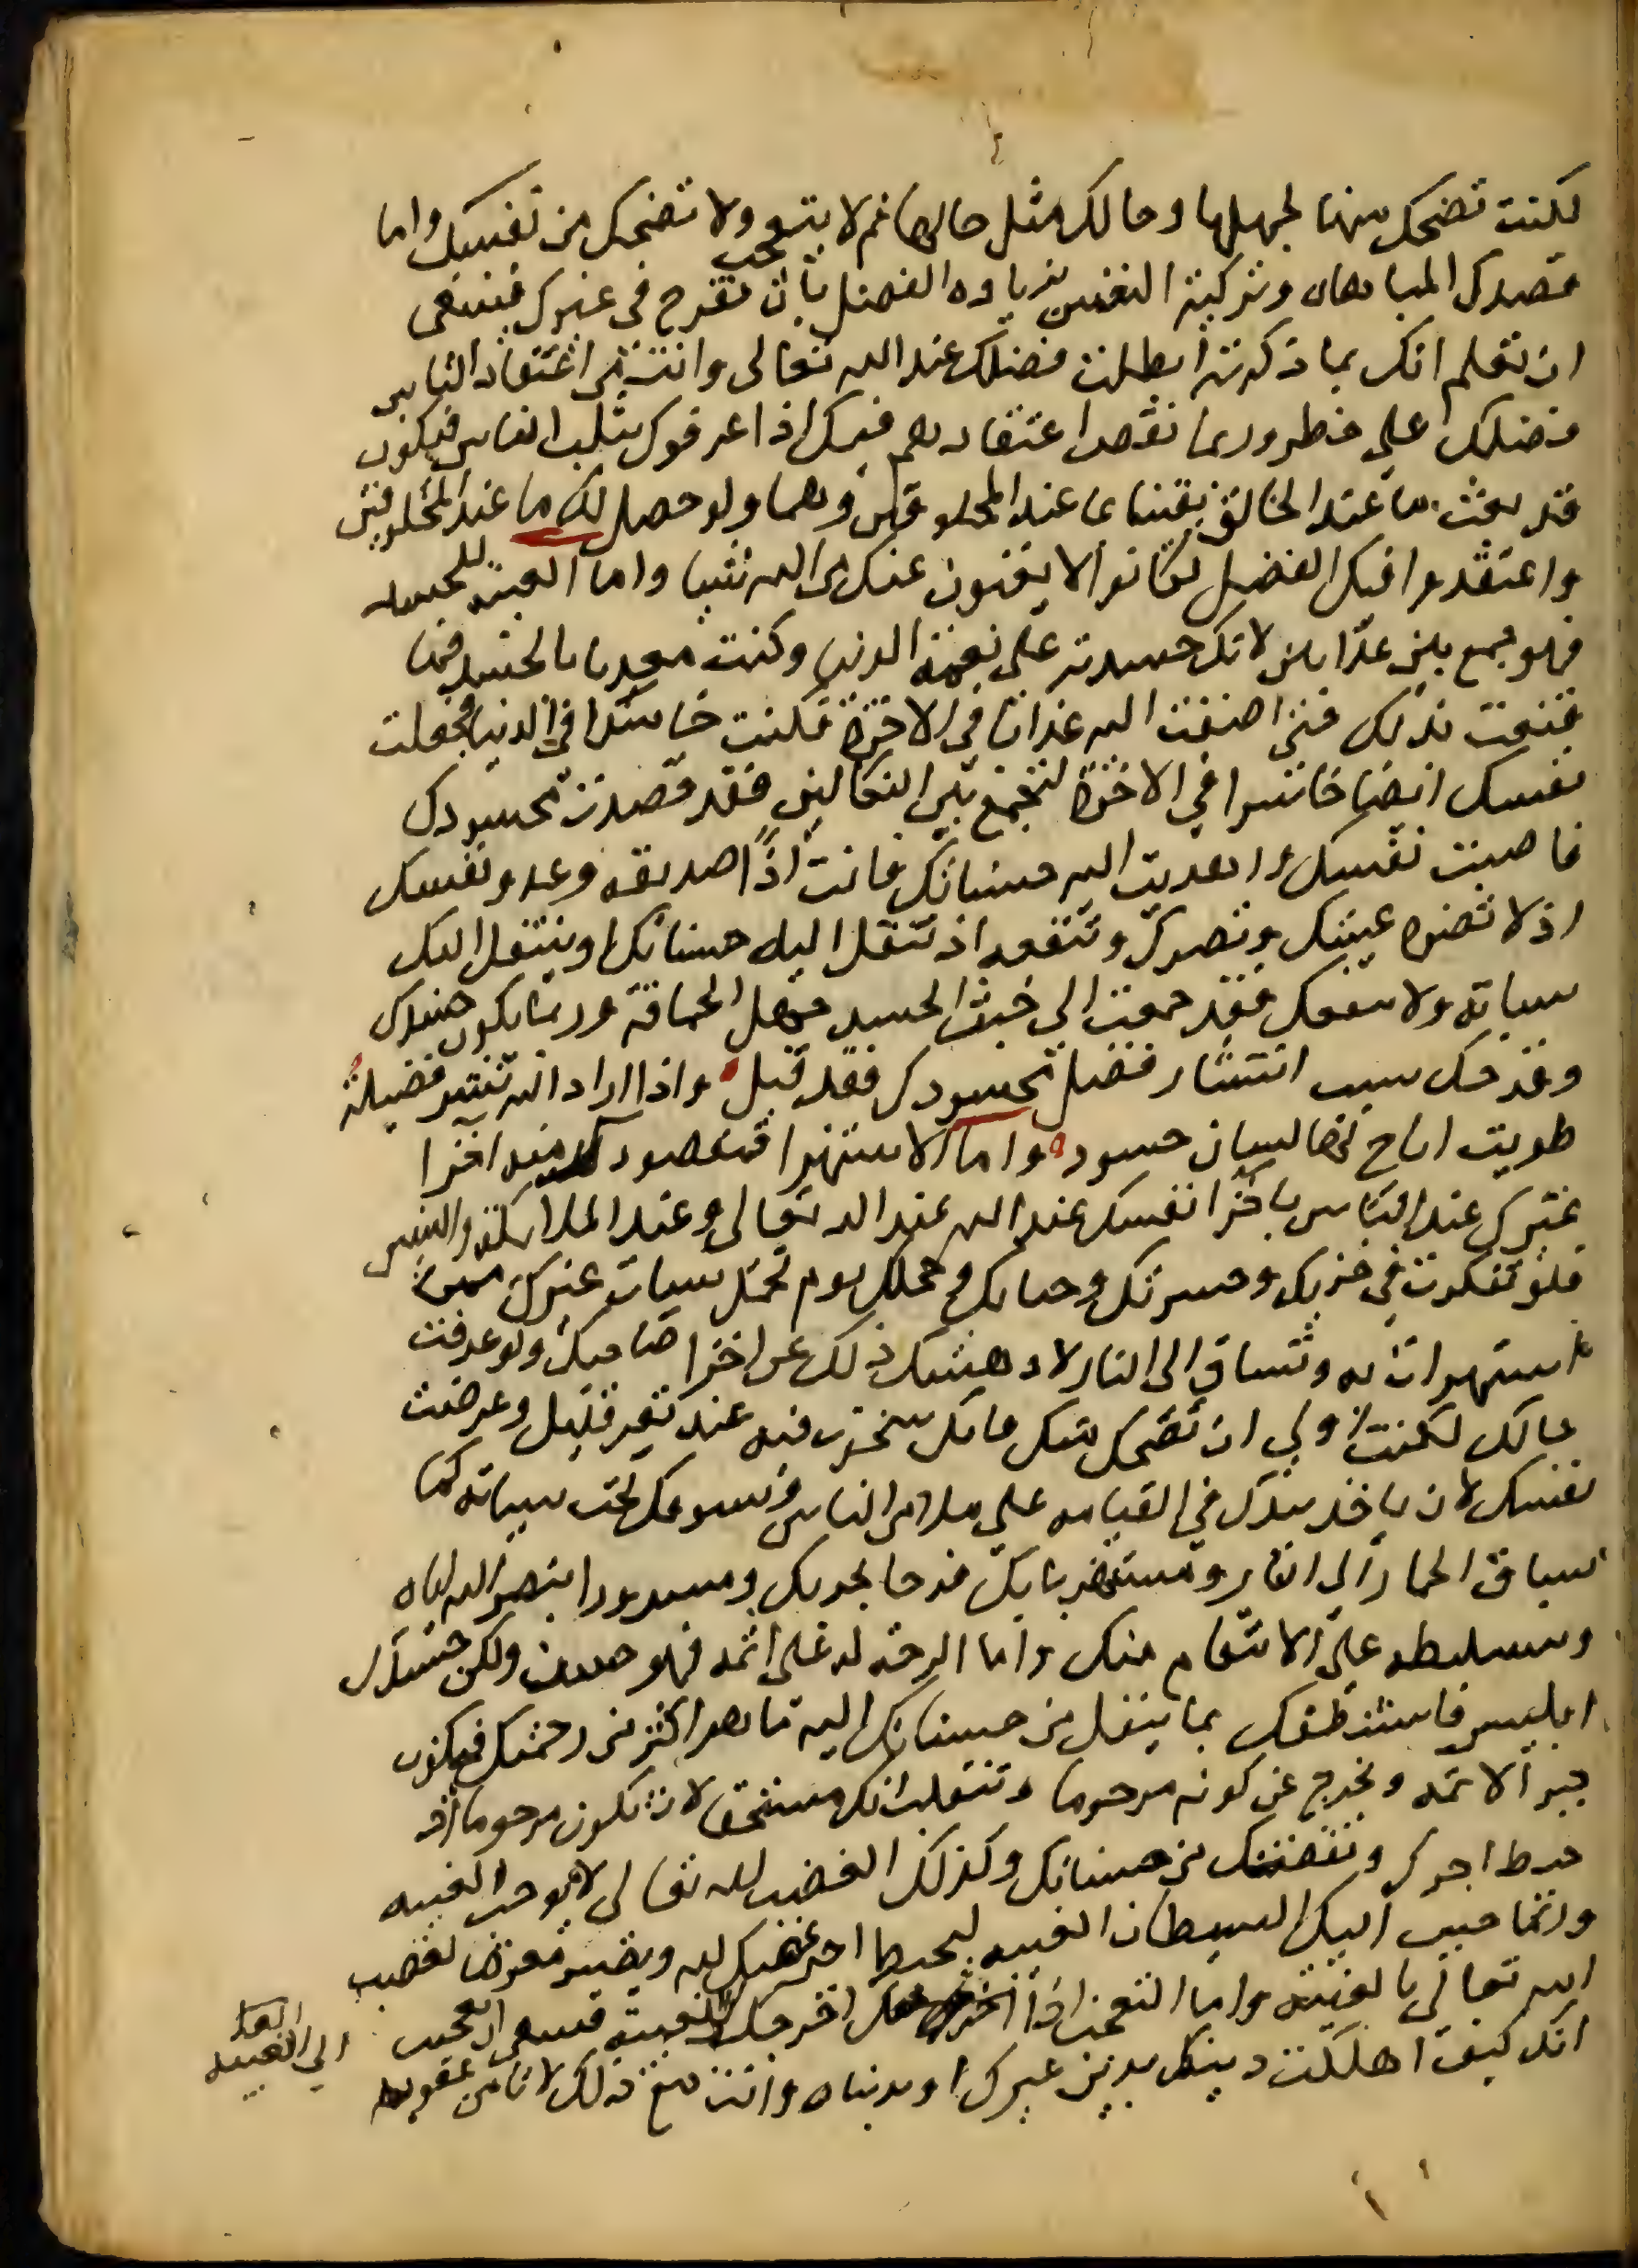 لكنت تضحك منها لجهلها وحالك مثل حالها ثم لا تتعجب ولا تضحك من نفسك واما
قصدك المباهاه وتزكية النفس بزياده الفضل بان تقدح في غيرك فينبغي
ان تعلم انك بما ذكرته ابطلت فضلك عند الله تعالى وانت من اعتقاد الناس
فضلك على خطر وربما نقص اعتقادهم فيك اذا عرفوك بثلب الناس فيكون
قد بعت ما عند الخالق يقينا بما عند المخلوقين وهما ولو حصل لك ما عند المخلوقين
واعتقدوا فيك الفضل لكانوا لا يغنون عنك من الله شيئا واما الغيبه للحسد
فهو جمع بين عذابين لانك حسدته على نعمة الدنيا وكنت معذبا بالحسد فما
قنعت بذلك حتى اضفت اليه عذابا في الاخرة فكنت خاسرا في الدنيا فجعلت
نفسك ايضا خاسرا في الاخرة لتجمع بين النكالين فقد قصدت محسودك
فاصبت نفسك واهديت اليه حسناتك فانت اذًا صديقه وعدو نفسك
اذ لا تضره غيبتك وتضرك وتنفعه اذ تنتقل اليه حسناتك او ينتقل اليك
سياته ولا ينفعك فقد جمعت الى خبث الحسد جهل الحماقة وربما يكون حسدك
وقدحك سبب انتشار فضل محسودك فقد قيل واذا اراد الله نشر فضيلة
طويت اتاح لها لسان حسود واما الاستهزا فمقصودك منه اخزا
غيرك عند الناس باخزا نفسك عند الله عند الله تعالى وعند الملايكة والنبيين
فلو تفكرت في خزيك وحسرتك وحيايك وخجلك يوم تحمل سيات غيرك ممن
استهزات به وتساق الى النار لادهشك ذلك عن اخزا صاحبك ولو عرفت
حالك لكنت اولى ان تضحك منك فانك سخرت فيه عند نفر قليل وعرضت
نفسك لان ياخذ بيدك في القيامه على ملا من الناس ويسوقك تحت سياته كما
يساق الحمار الى النار ومستهزيا بك فرحا بخزيك ومسرورا بنصر الله اياه
وتسليطه على الانتقام منك واما الرحمة له على اثمه فهو حسن ولكن حسدك
ابليس فاستنطقك بما ينقل من حسناتك اليه ما هو اكثر من رحمتك فيكون
جبرا لاثمه ويخرج عن كونه مرحوما وتنقلب انك مستحق لان تكون مرحوما اذ
حبط اجرك ونقصت من حسناتك وكذلك الغضب لله تعالى لا يوجب الغيبه
وانما حبب اليك الشيطان الغيبه ليحبط اجر غضبك لله ويصير معرضا لغضب
الله تعالى بالغيبة واما التعجب اذا اخرجك الى الغيبة فينبغي ان تتعجب
انك كيف اهلكت دينك بدين غيرك او بدنياه وانت مع ذلك لا تامن عقوبة
الى الغيبه